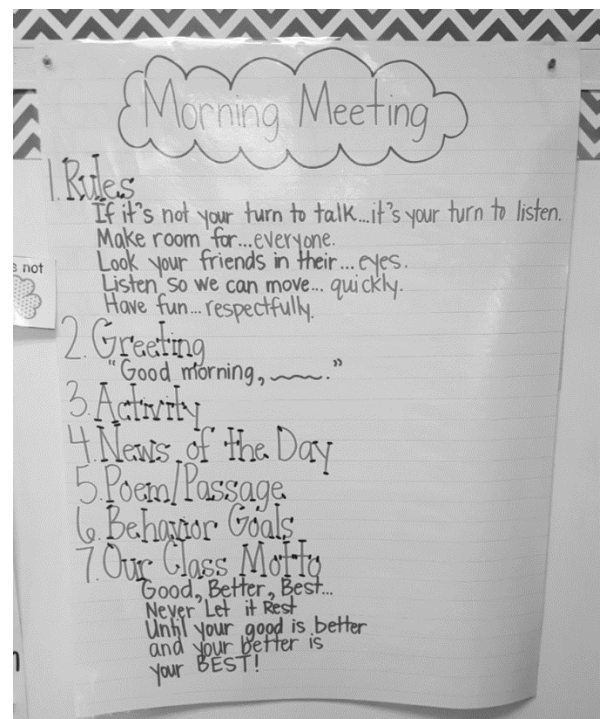 Morning Meeting
1. Rules
If it's not your turn to talk...it's your turn to listen.
Make room for...everyone.
Look your friends in their...eyes.
Listen so we can move...quickly.
Have fun...respectfully.
s not
2. Greeting
"Good morning, ."
3. Activity
4. News of the Day
5. Poem/Passage
6. Behavior Goals
7. Our Class Motto
Good, Better, Best...
Never Let it Rest
Until your good is better
and your better is
your BEST!